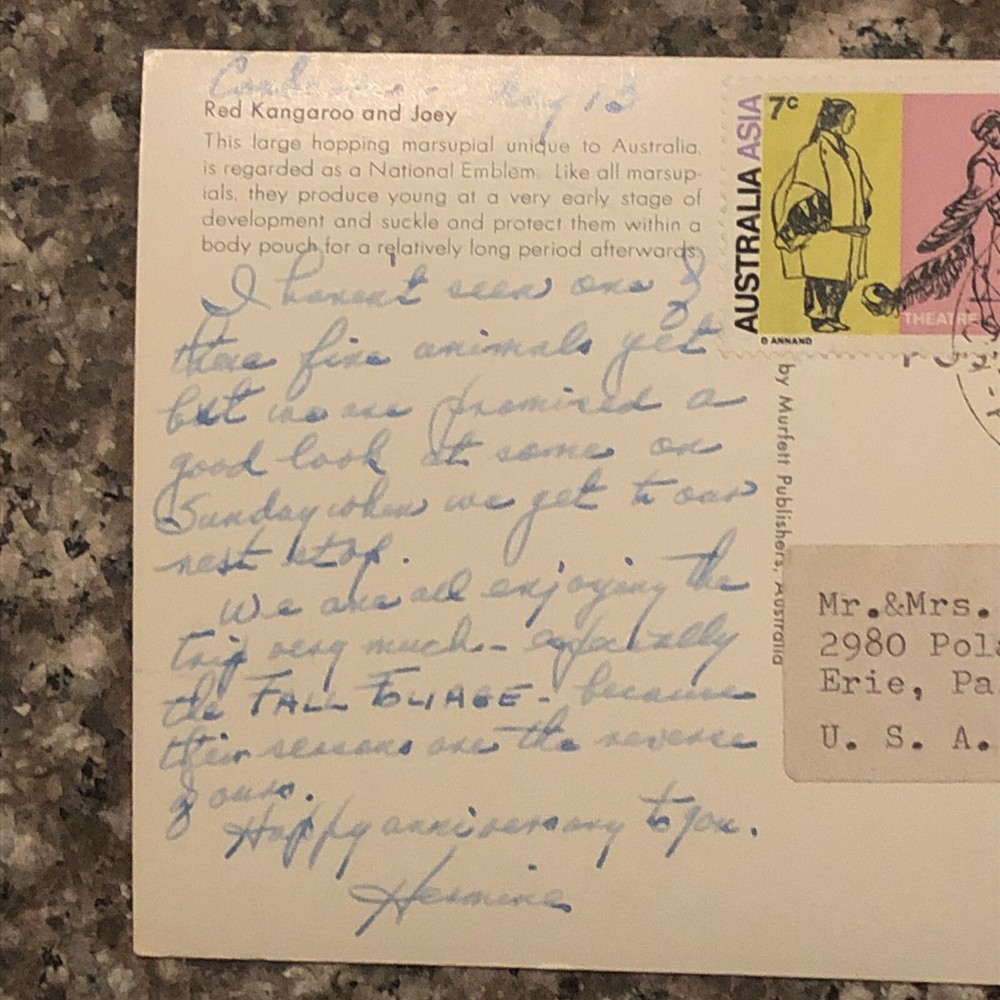 May 13
Red Kangaroo and Joey
This large hopping marsupial unique to Australia,
is regarded as a National Emblem. Like all marsup-
ials, they produce young at a very early stage of
development and suckle and protect them within a
body pouch for a relatively long period afterwards.
I haven't seen one of
these fine animals yet
but we are promised a
good look at some on
Sunday when we get to our
next stop.
We are all enjoying the
trip very much - especially
the FALL FOLIAGE - because
their seasons are the reverse
of ours.
Happy anniversary to you.
Hermine
7c
AUSTRALIA ASIA
THEATRE
D ANNAND
by Murfett Publishers, Australia
Mr.&Mrs.
2980 Pol
Erie, Pa
U. S. A.